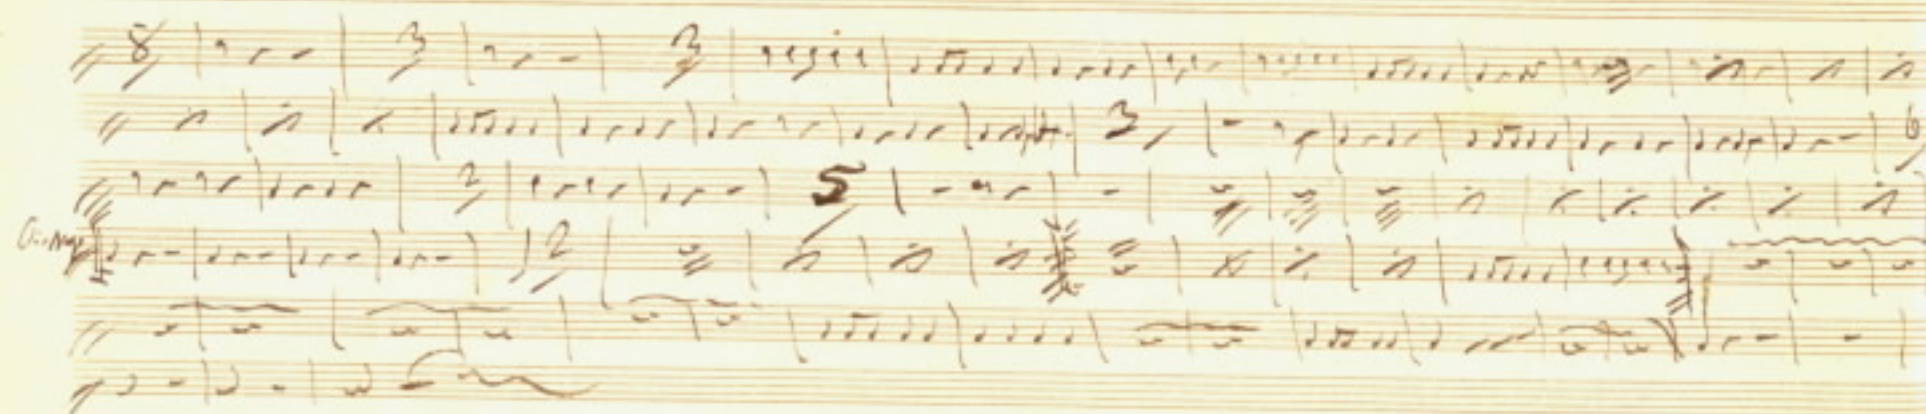 8 3 3
3 6
2 5
2